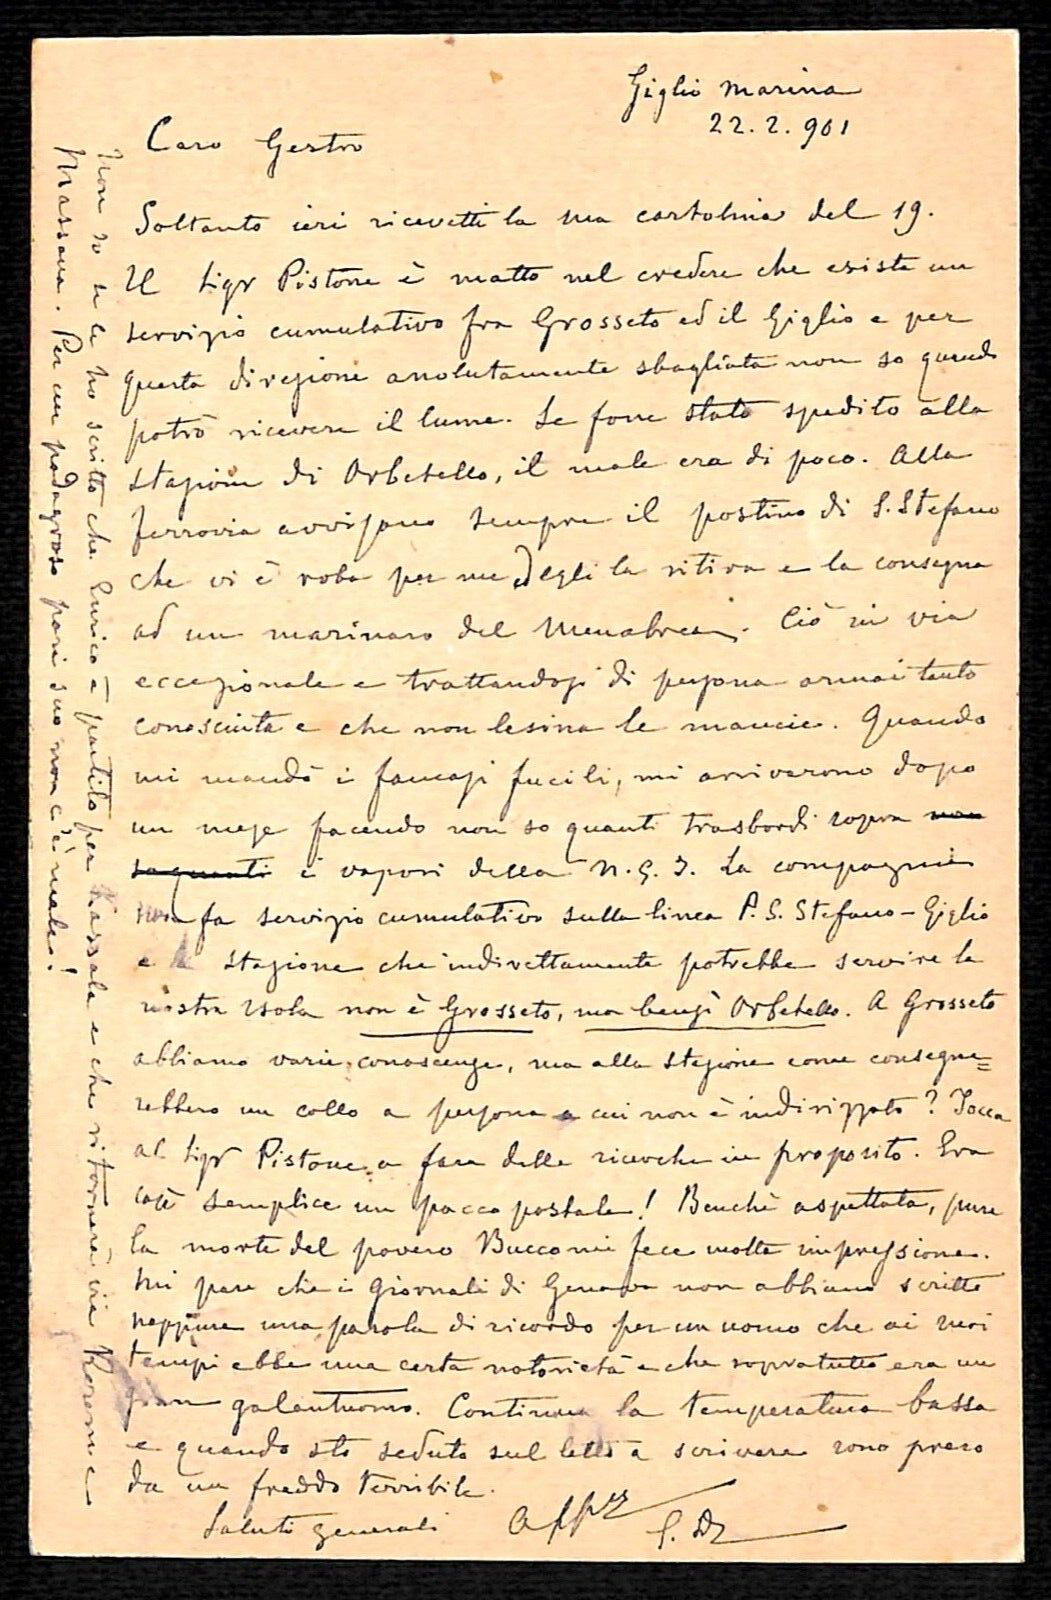 Giglio Marina
22.2.901
Caro Gestro
Soltanto ieri ricevetti la tua cartolina del 19.
Il Sigr Pistone è matto nel credere che esista un
servizio cumulativo fra Grosseto ed il Giglio e per
questa direzione assolutamente sbagliata non so quando
potrò ricevere il lume. Se fosse stato spedito alla
stazione di Orbetello, il male era di poco. Alla
ferrovia avvisano sempre il postino di S. Stefano
che vi è roba per me egli la ritira e la consegna
ad un marinaro del Menabrea. Ciò in via
eccezionale e trattandosi di persona ormai tanto
conosciuta e che non lesina le mancie. Quando
mi mandò i famosi fucili, mi arrivarono dopo
un mese facendo non so quanti trasbordi sopra non
so quanti i vapori della N.G.I. La compagnia
non fa servizio cumulativo sulla linea P. S. Stefano - Giglio
e la stazione che indirettamente potrebbe servire la
nostra Isola non è Grosseto, ma bensì Orbetello. A Grosseto
abbiamo varie conoscenze, ma alla stazione come consegne=
rebbero un collo a persona a cui non è indirizzato? Tocca
al Sigr Pistone a fare delle ricerche in proposito. Era
così semplice un pacco postale! Benchè aspettata, pure
la morte del povero Bucco mi fece molta impressione.
Mi pare che i giornali di Genova non abbiano scritto
neppure una parola di ricordo per un uomo che ai suoi
tempi ebbe una certa notorietà e che sopratutto era un
gran galantuomo. Continua la temperatura bassa
e quando sto seduto sul letto a scrivere sono preso
da un freddo terribile.
Saluti generali
Affmo
G. D
Non so se le ho scritto che Enrico è partito per Kassala e che ritornerà via
Massaua. Per un podagroso pari suo non c'è male!